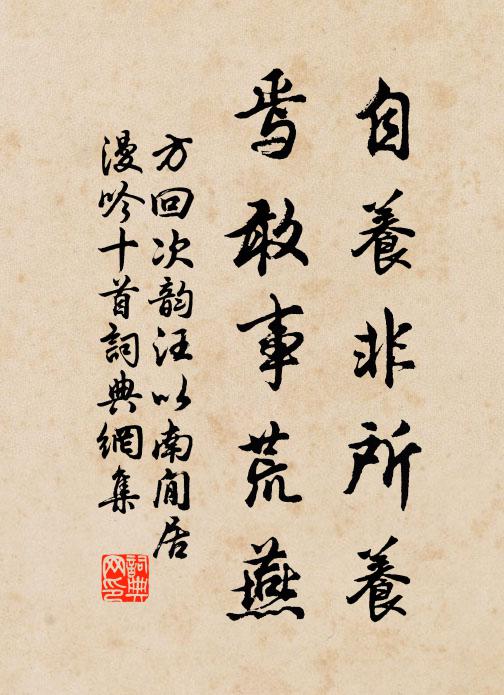 自養非所養
焉敢事荒燕
方回次韵汪以南閒居
漫吟十首詞典網集
詞典网印